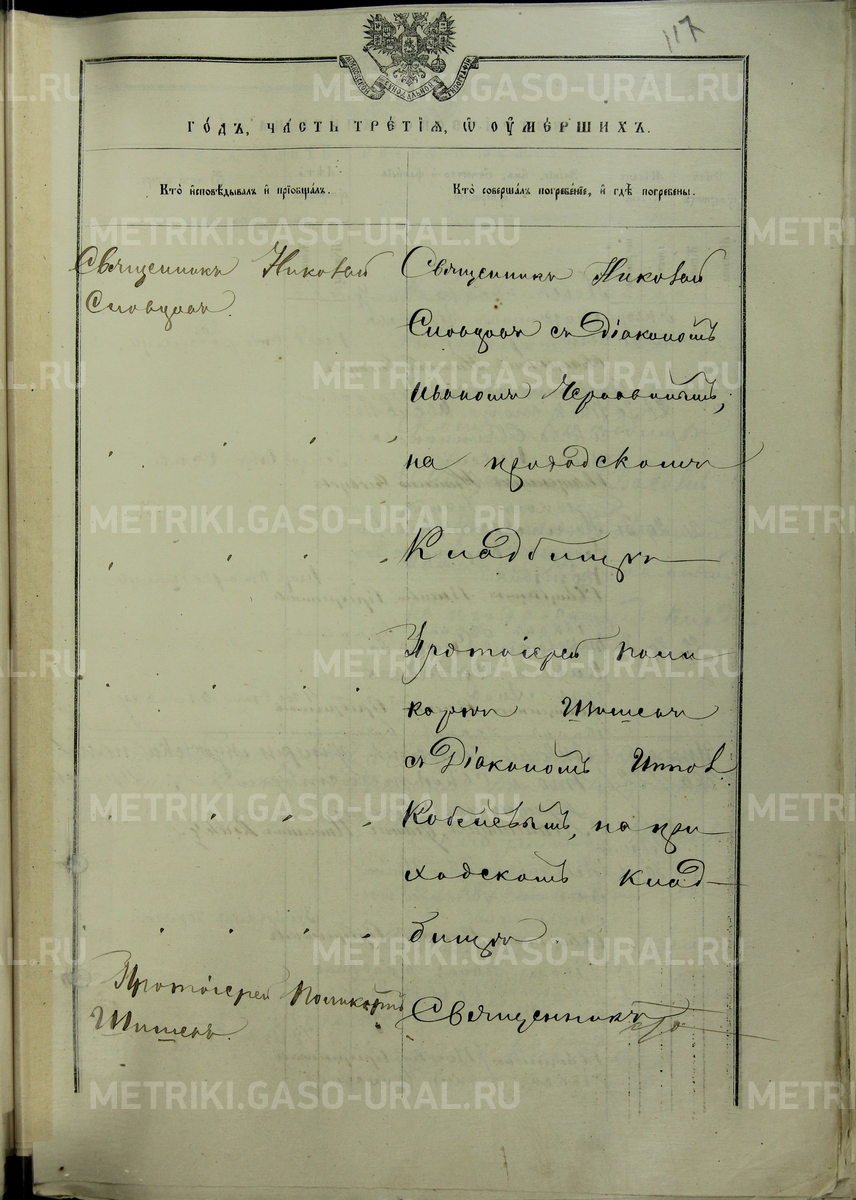 117
ГО́ДЪ, ЧА́СТЬ ТРЕ́ТІѦ, Ѡ҆ ОУ҆МЕ́РШИХЪ.
Кто̀ и҆сповѣ́дывалъ и҆ пріѡбща́лъ.
Кто̀ соверша́лъ погребе́нїе, и҆ гдѣ̀ погребены.
Священникъ Николай
Словцовъ.
Священникъ Николай
Словцовъ съ Діакономъ
Иваномъ
на приходскомъ
Кладбищѣ
Протоіерей Поли
карпъ Шишевъ
съ Діакономъ
Кобелевымъ, на при
ходскомъ клад
бищѣ.
Протоіерей Поликарпъ
Шишевъ.
Священникъ
METRIKI.GASO-URAL.RU